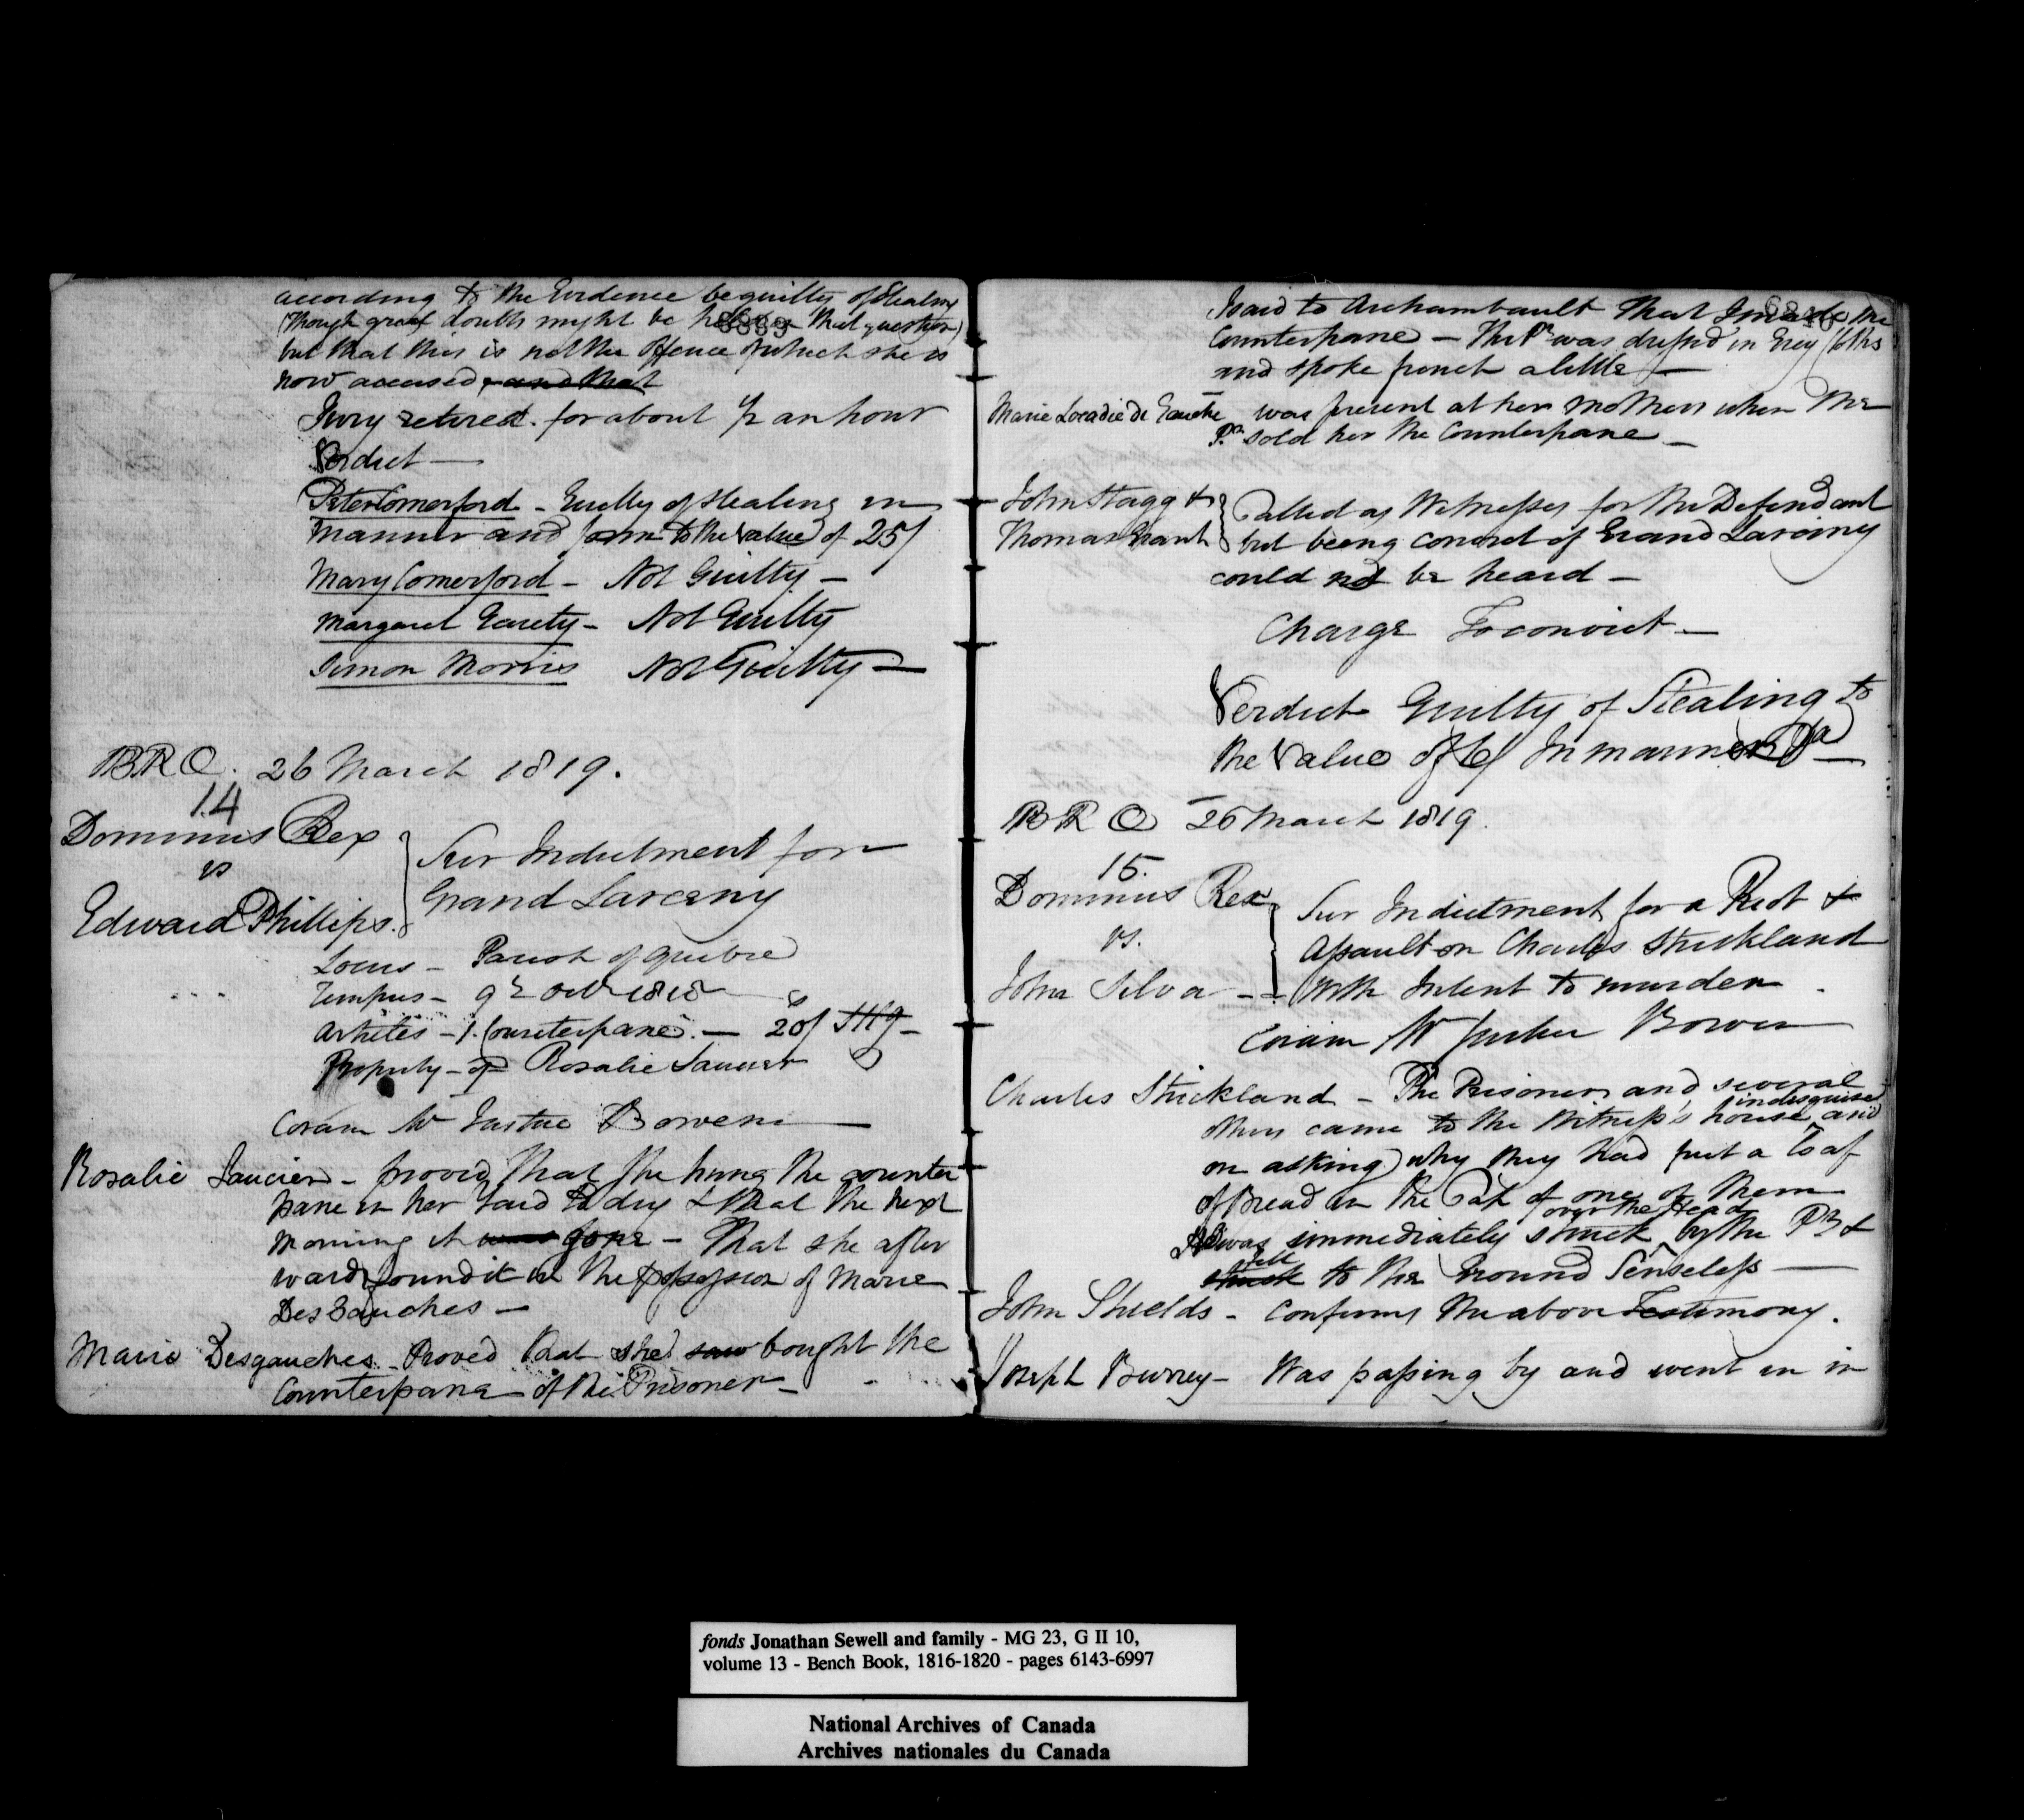 according to the Evidence be guilty of Stealing
(though great doubts might be had on that question)
but that this is not the Offence of which she is
now accused, and that
Jury retired for about ½ an hour
Verdict —
Peter Comerford - Guilty of Stealing in
manner and form to the value of 25/
Mary Comerford - Not Guilty -
Margaret Garety - Not Guilty
Simon Morris Not Guilty —
BRQ. 26 March 1819.
14
Dominus Rex
vs
Edward Phillips.
Sur Indictment for
Grand Larceny
Locus - Parish of Quebec
Tempus - 9 Oct 1818
Articles - 1. Counterpane. — 20/ Stg -
Property - of Rosalie Saucier
Coram Mr Justice Bowen —
Rosalie Saucier - proved that she hung the counter
pane in her Yard to dry & that the next
Morning it was gone - That she after
wards found it in the possession of Marie
Des Gauches -
Marie Desgauches - Proved that she saw bought the
Counterpane of the Prisoner -
6840
I said to Archambault that I made the
Counterpane — The Pr was dressed in Grey Cloths
and spoke french a little —
Marie Locadie de Gauche was present at her Mothers when the
Pr sold her the Counterpane -
John Stagg &
Thomas Grant
Called as Witnesses for the Defendant
but being convict of Grand Larceny
could not be heard -
Charge To convict -
Verdict Guilty of Stealing to
the Value of 6/ In manner &a
BRQ 26 March 1819.
15.
Dominus Rex
vs.
John Silva -
Sur Indictment for a Riot &
Assault on Charles Strickland
With Intent to murder
Coram Mr Justice Bowen
Charles Strickland - The Prisoner and several
in disguise
others came to the Witness's house, and
on asking why they had put a Loaf
of Bread in the Hat of one of them
over the Head
He was immediately struck by the Pr &
fell
struck to the Ground Senseless —
John Shields - Confirms the above Testimony.
Joseph Burney - Was passing by and went in in
fonds Jonathan Sewell and family - MG 23, G II 10,
volume 13 - Bench Book, 1816-1820 - pages 6143-6997
National Archives of Canada
Archives nationales du Canada